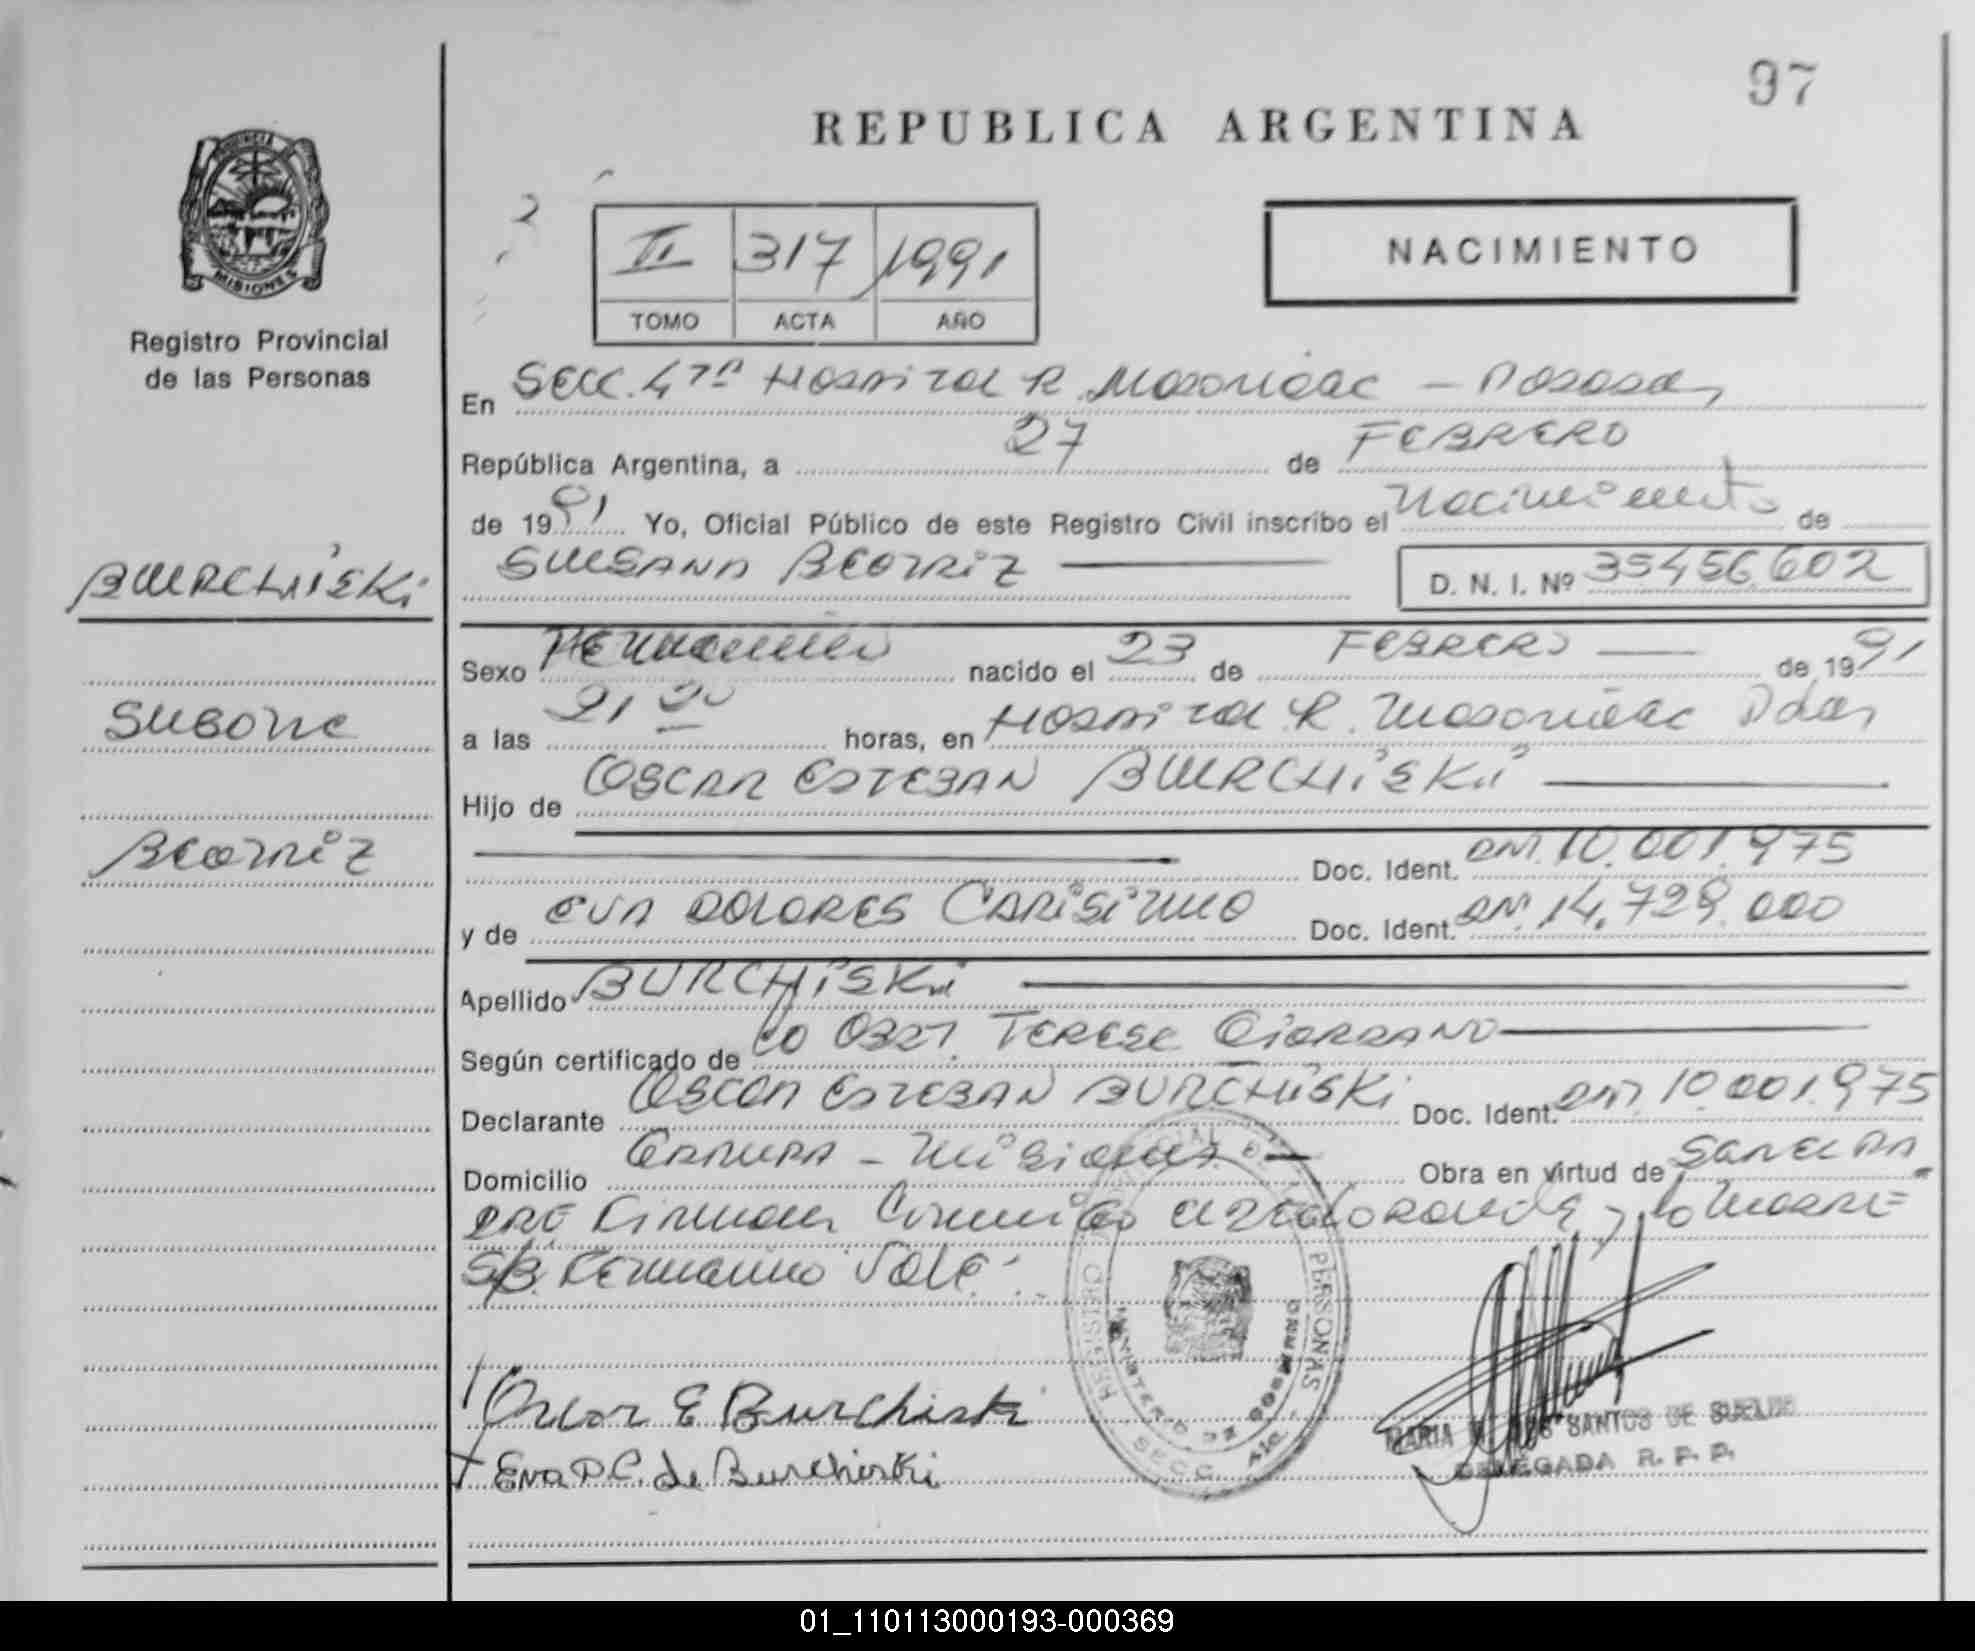 97
REPUBLICA ARGENTINA
PROVINCIA
MISIONES
2
II 317 1991
TOMO ACTA AÑO
NACIMIENTO
Registro Provincial
de las Personas
En Secc. 4ta Hospital R. Madariaga - Posadas,
República Argentina, a 27 de FEBRERO
de 1991 Yo, Oficial Público de este Registro Civil inscribo el Nacimiento de
BURCHISKi
SUSANA BEATRIZ D. N. I. Nº 35456.602
Sexo FEMENINO nacido el 23 de FEBRERO de 1991
SUSANA
a las 21 horas, en Hospital R. Pdas,
Hijo de OSCAR ESTEBAN BURCHISKi
BEATRIZ
Doc. Ident. DNI. 10.001.975
y de EVA DOLORES CARISIMO Doc. Ident. DNI. 14.729.000
Apellido BURCHISKi
Según certificado de TERESA GIORDANO
Declarante OSCAR ESTEBAN BURCHISKi Doc. Ident. DNI. 10.001.975
Domicilio GARUPA - Misiones Obra en virtud de
Firman el declarante y la madre
S/B. Femenino Vale.
Oscar E Burchiski
Eva D.C. de Burchiski
REGISTRO PROVINCIAL DE PERSONAS
MINISTERIO DE GOBIERNO
SECC
MARIA SANTOS DE
DELEGADA R. P. P.
01_110113000193-000369